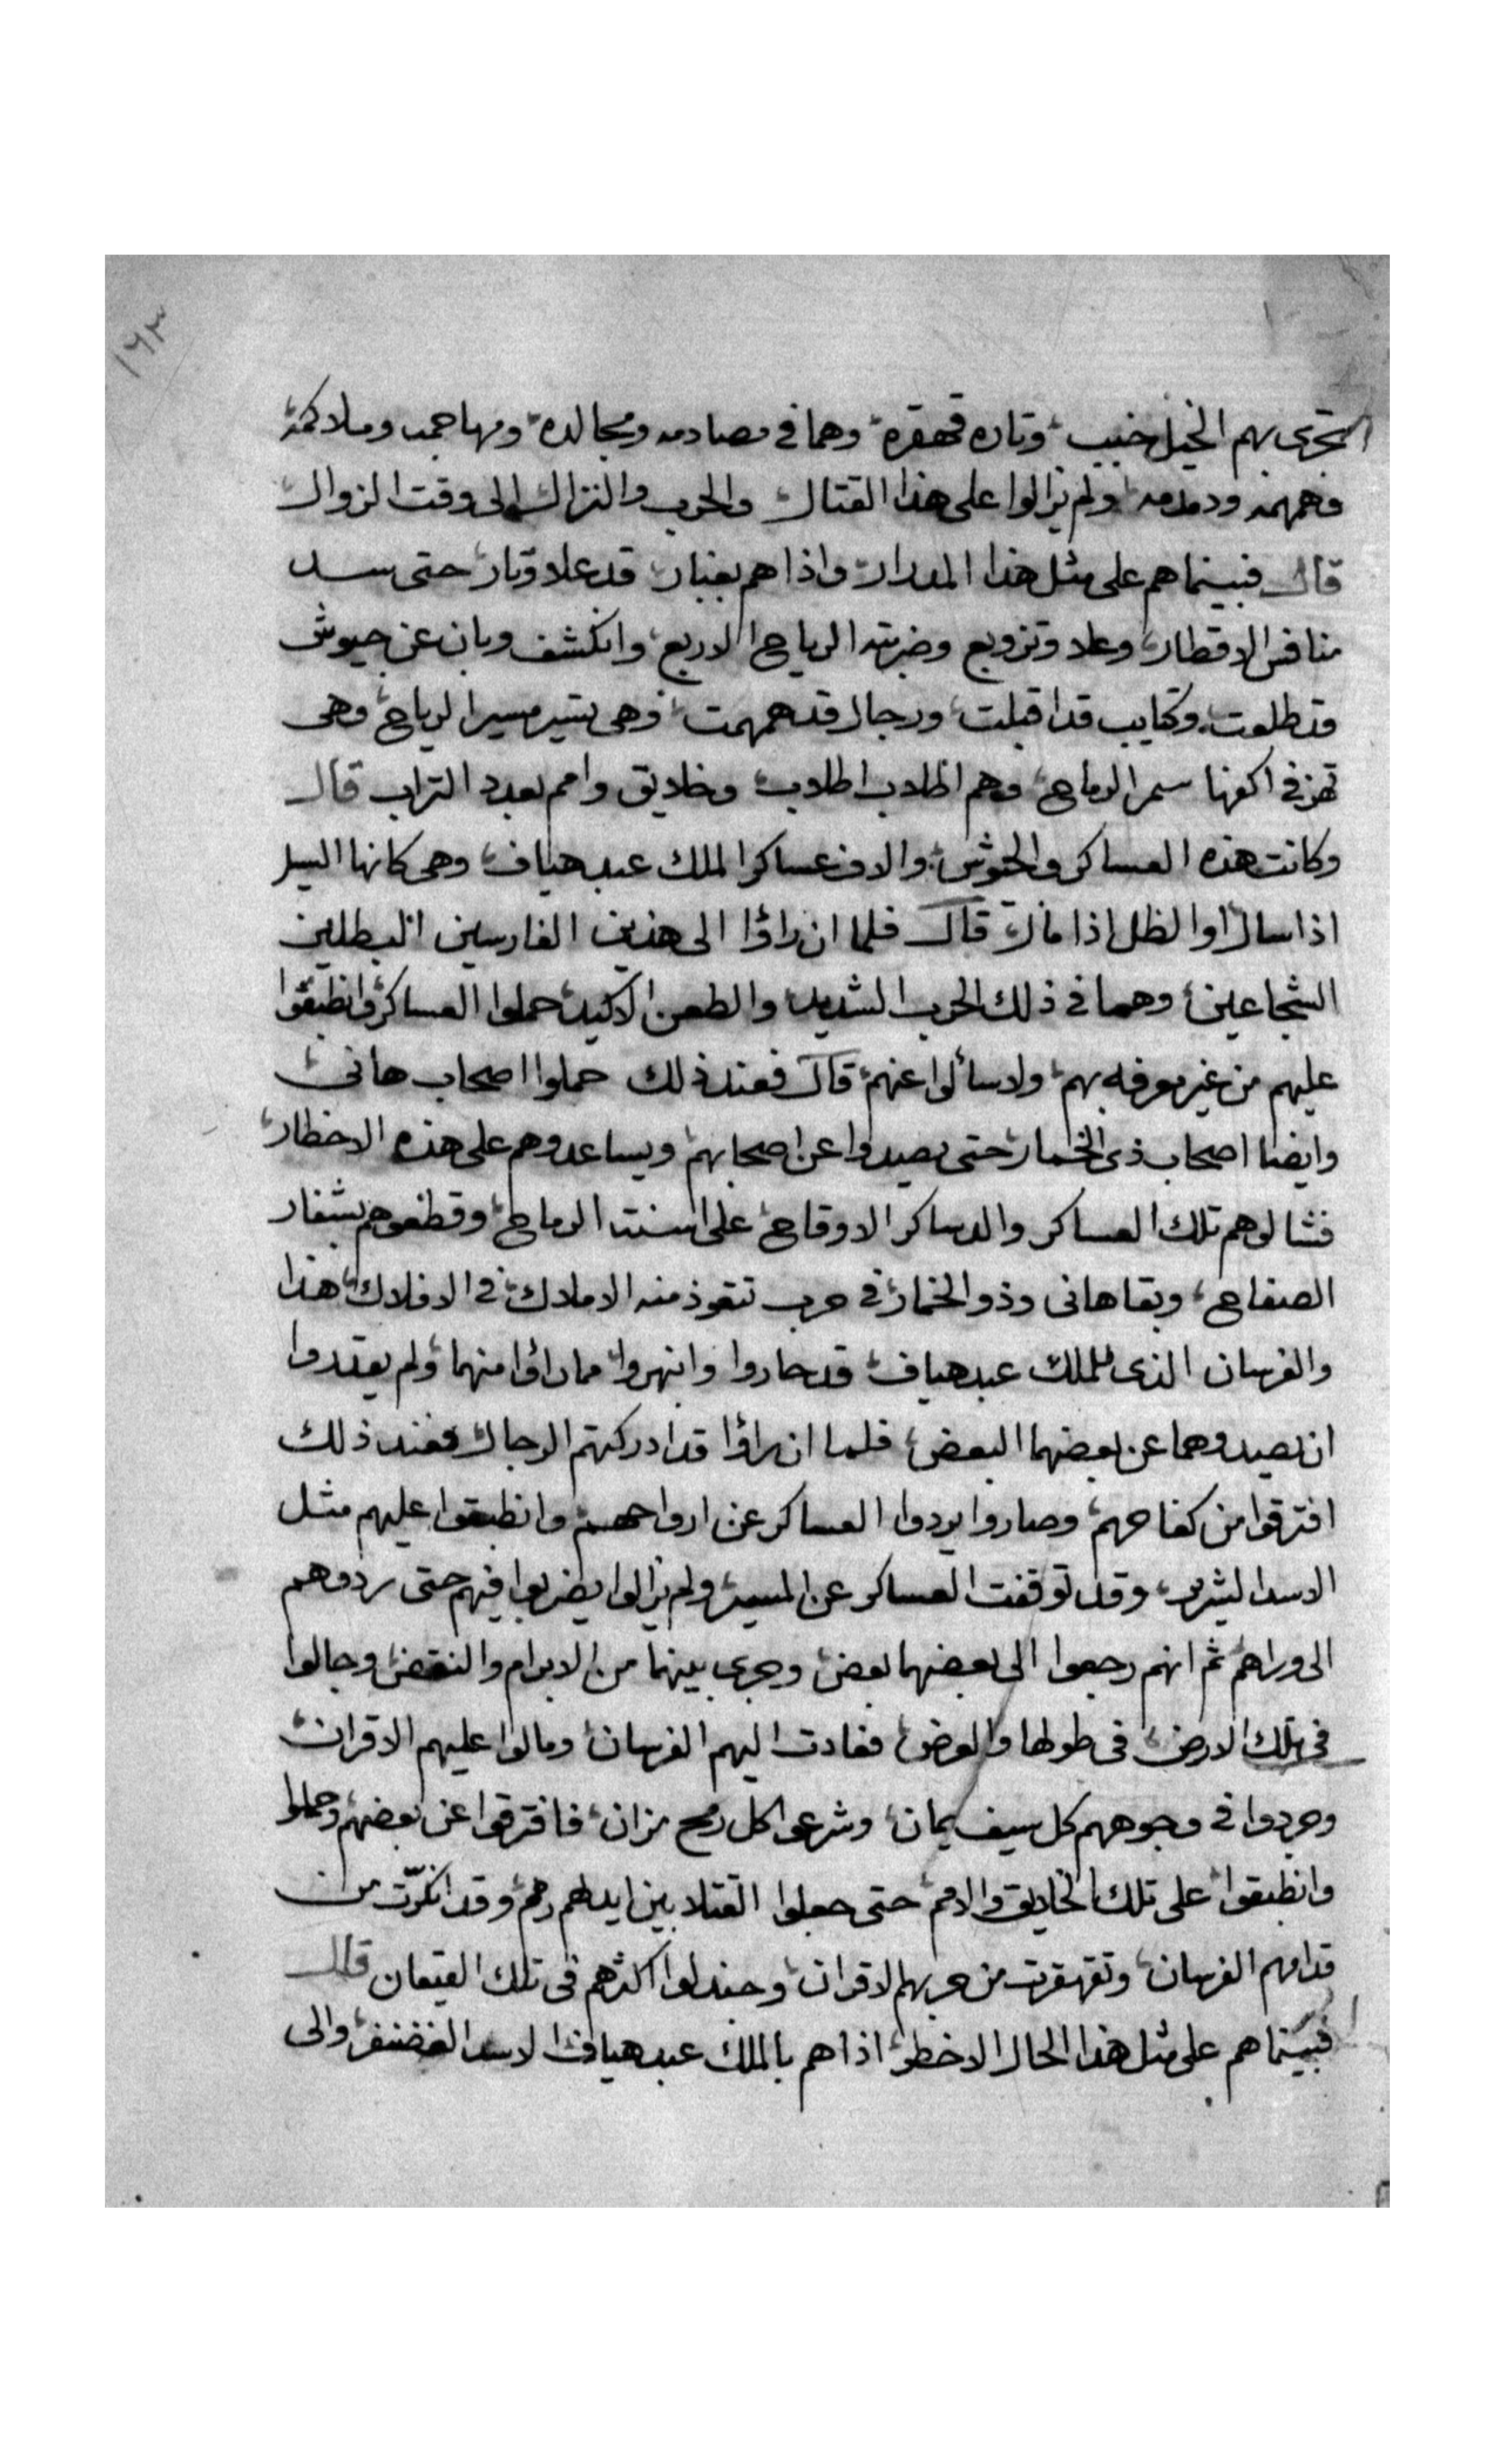 ١٦٣
تجرى بهم الخيل خبب وتاره قهقره وهما فى مصادمه ومجالده ومهاجمه وملاكمة
وهمهمه ودمدمه ولم يزالوا على هذا القتال والحرب والنزال الى وقت الزوال
قال فبينماهم على مثل هذا المدار واذا هم بغبار قد علا وثار حتى سد
منافس الاقطار وعلا وتزوبع وضربته الرياح الاربع وانكشف وبان عن جيوش
قد طلعت وكتايب قد اقبلت ورجال قد همهمت وهى تسير مسير الرياح وهى
تهز فى اكفها سمر الرماح وهم اطلاب اطلاب وخلايق وامم بعدد التراب قال
وكانت هذه العساكر والجوش والاف عساكر الملك عبد هياف وهى كانها السيل
اذا سال او الظل اذا مال قال فلما ان راؤا الى هذين الفارسين البطلين
الشجاعين وهما فى ذلك الحرب الشديد والطعن الاكيد حملوا العساكر وانطبقوا
عليهم من غير معرفه بهم ولا سألوا عنهم قال فعند ذلك حملوا اصحاب هانى
وايضا اصحاب ذى الخمار حتى يصيدوا عن اصحابهم ويساعدوهم على هذه الاخطار
فشالوهم تلك العساكر والدساكر الاوقاح على اسنت الرماح وقطعوهم بشفار
الصفاح وبقا هانى وذو الخمار فى حرب تتعوذ منه الاملاك فى الافلاك هذا
والفرسان الذى للملك عبد هياف قد حاروا وانبهروا مما راؤا منهما ولم يقتدروا
ان يصيدوهما عن بعضهما البعض فلما ان راؤا قد ادركتهم الرجال فعند ذلك
افترقوا من كفاحهم وصاروا يردوا العساكر عن ارواحهم وانطبقوا عليهم مثل
الاسد الشرير وقد توقفت العساكر عن المسير ولم يزالوا يضربوا فيهم حتى ردوهم
الى وراهم ثم انهم رجعوا الى بعضهما بعض وجرى بينهما من الابرام والنقض وجالوا
فى تلك الارض فى طولها والعرض فعادت اليهم الفرسان ومالوا عليهم الاقران
وجردوا فى وجوههم كل سيف يمان وشرعوا كل رمح مزان فافترقوا عن بعضهم وحملوا
وانطبقوا على تلك الخلايق والامم حتى جعلوا القتلا بين ايديهم رمم وقد انكرّت من
قدامهم الفرسان وتقهقرت من حربهم الاقران وجندلوا اكثرهم فى تلك القيعان قال
فبينماهم على مثل هذا الحال الاخطر اذا هم بالملك عبد هياف الاسد الغضنفر والى